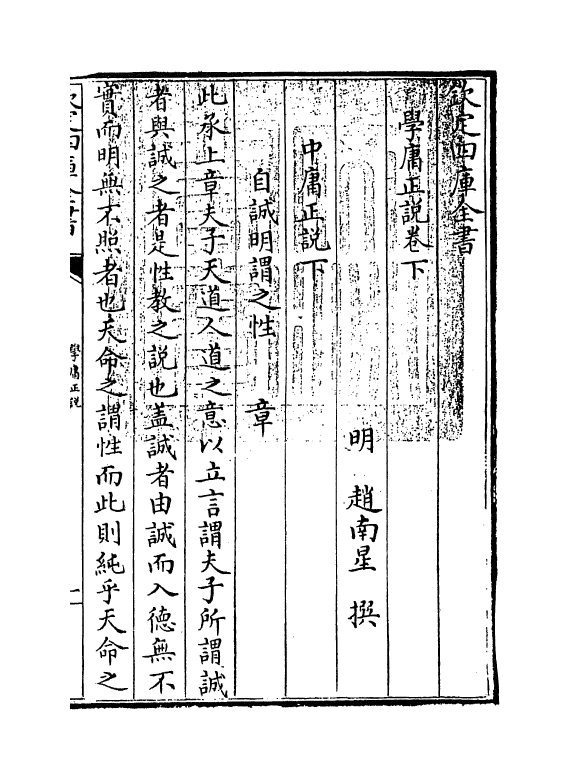 欽定四庫全書
學庸正説卷下
明 趙南星 撰
中庸正説下
自誠明謂之性 章
此承上章夫子天道人道之意以立言謂夫子所謂誠
者與誠之者是性教之説也盖誠者由誠而入徳無不
實而明無不照者也天命之謂性而此則純乎天命之
學庸正説